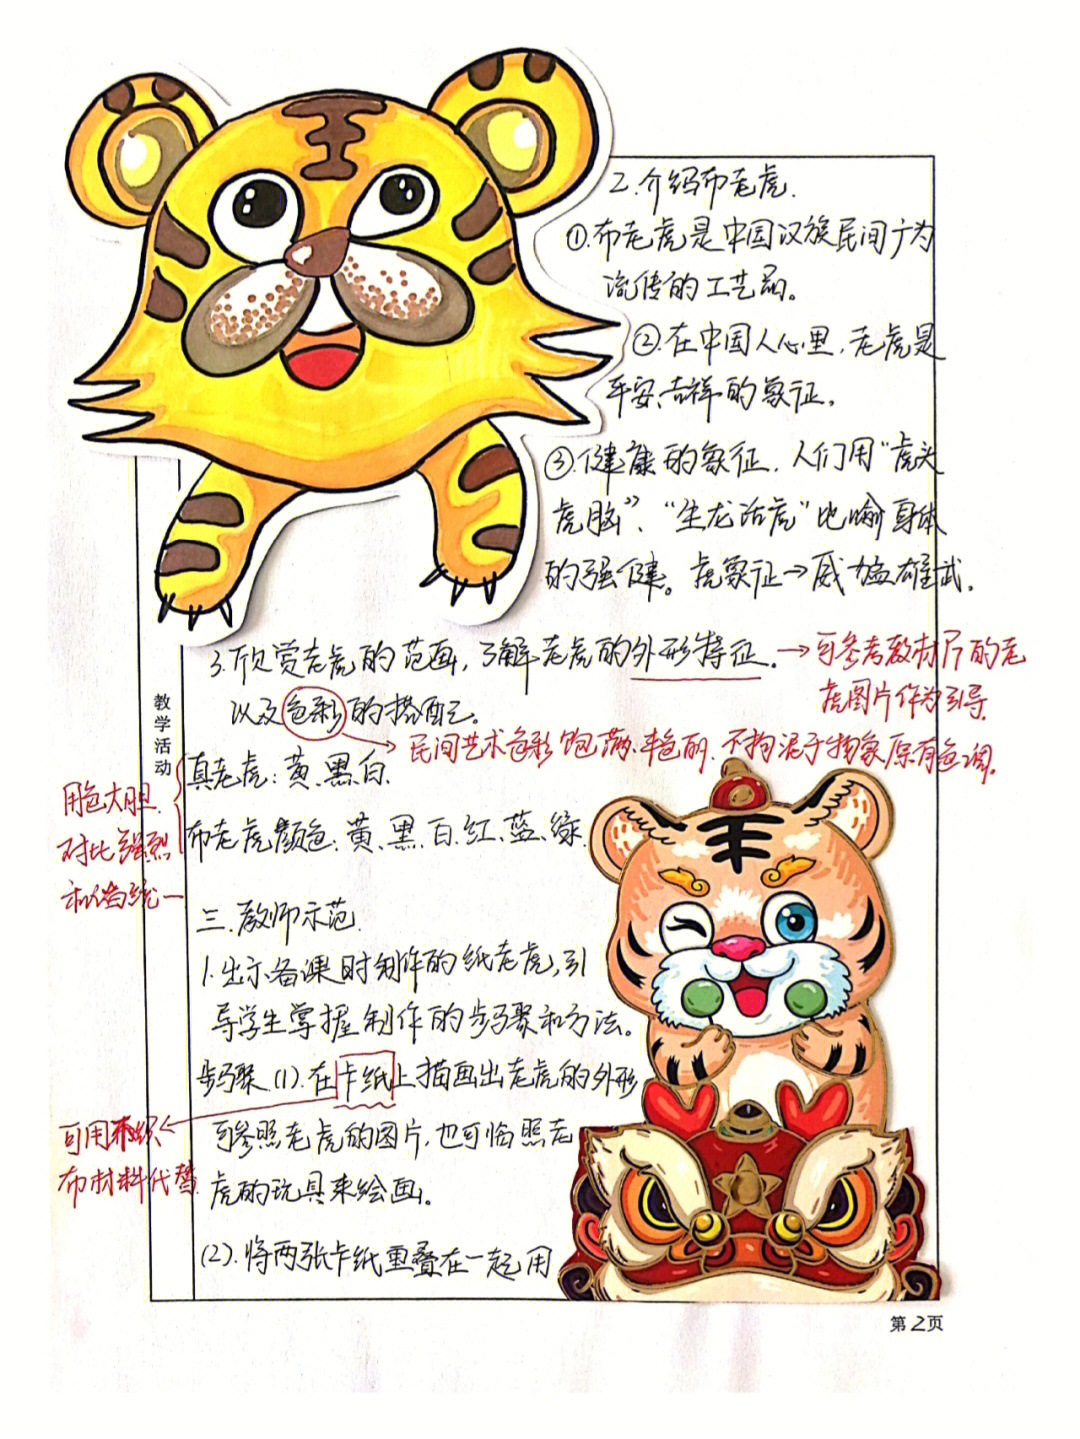 2.介绍布老虎.
①.布老虎是中国汉族民间广为
流传的工艺品。
②.在中国人心里,老虎是
平安、吉祥的象征.
③.健康的象征.人们用“虎头
虎脑”、“生龙活虎”比喻身体
的强健。虎象征→威猛雄武.
3.欣赏老虎的范画,了解老虎的外形特征.
→可参考教材后的老
虎图片作为引导.
以及色彩的搭配。
→民间艺术色彩饱满.艳丽.不拘泥于物象原有色调.
教学活动
真老虎:黄.黑.白.
布老虎颜色:黄、黑.白.红、蓝、绿.
用色大胆.
对比强烈
和谐统一
三.教师示范.
1.出示备课时制作的纸老虎,引
导学生掌握制作的步骤和方法。
步骤.(1).在卡纸上描画出老虎的外形
可用
布材料代替.
可参照老虎的图片,也可临照老
虎的玩具来绘画。
(2).将两张卡纸重叠在一起用
第2页